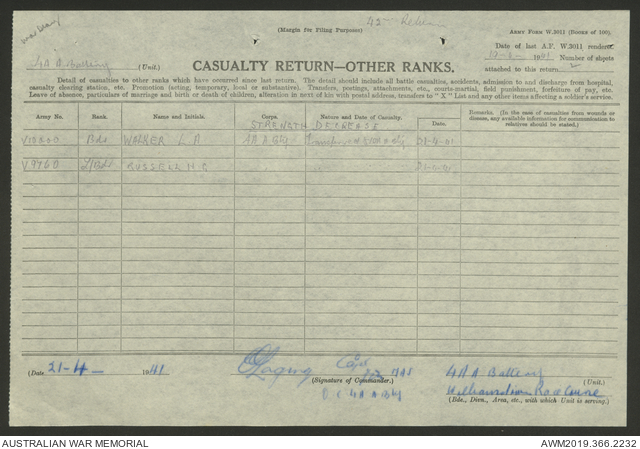 (Margin for Filing Purposes)
ARMY FORM W.3011 (BOOKS OF 100).
4 A A Battery (Unit.)
Date of last A.F. W.3011 rendered
1941 Number of sheets
CASUALTY RETURN—OTHER RANKS.
attached to this return 2
Detail of casualties to other ranks which have occurred since last return. The detail should include all battle casualties, accidents, admission to and discharge from hospital,
casualty clearing station, etc. Promotion (acting, temporary, local or substantive). Transfers, postings, attachments, etc., courts-martial, field punishment, forfeiture of pay, etc.
Leave of absence, particulars of marriage and birth or death of children, alteration in next of kin with postal address, transfers to "X" List and any other items affecting a soldier's service.
Army No. Rank. Name and Initials. Corps. Nature and Date of Casualty. Date. Remarks. (In the case of casualties from wounds or disease, any available information for communication to relatives should be stated.)
STRENGTH DECREASE
V10800 Bdr WALKER L A 21-4-41
V9760 L/Bdr RUSSELL H C " "
(Date 21-4- 1941 Capt
(Signature of Commander.)
O.C 4 A A Bty
4 A A Battery (Unit.)
Williamstown Race Course
(Bde., Divn., Area, etc., with which Unit is serving.)
AUSTRALIAN WAR MEMORIAL
AWM2019.366.2232